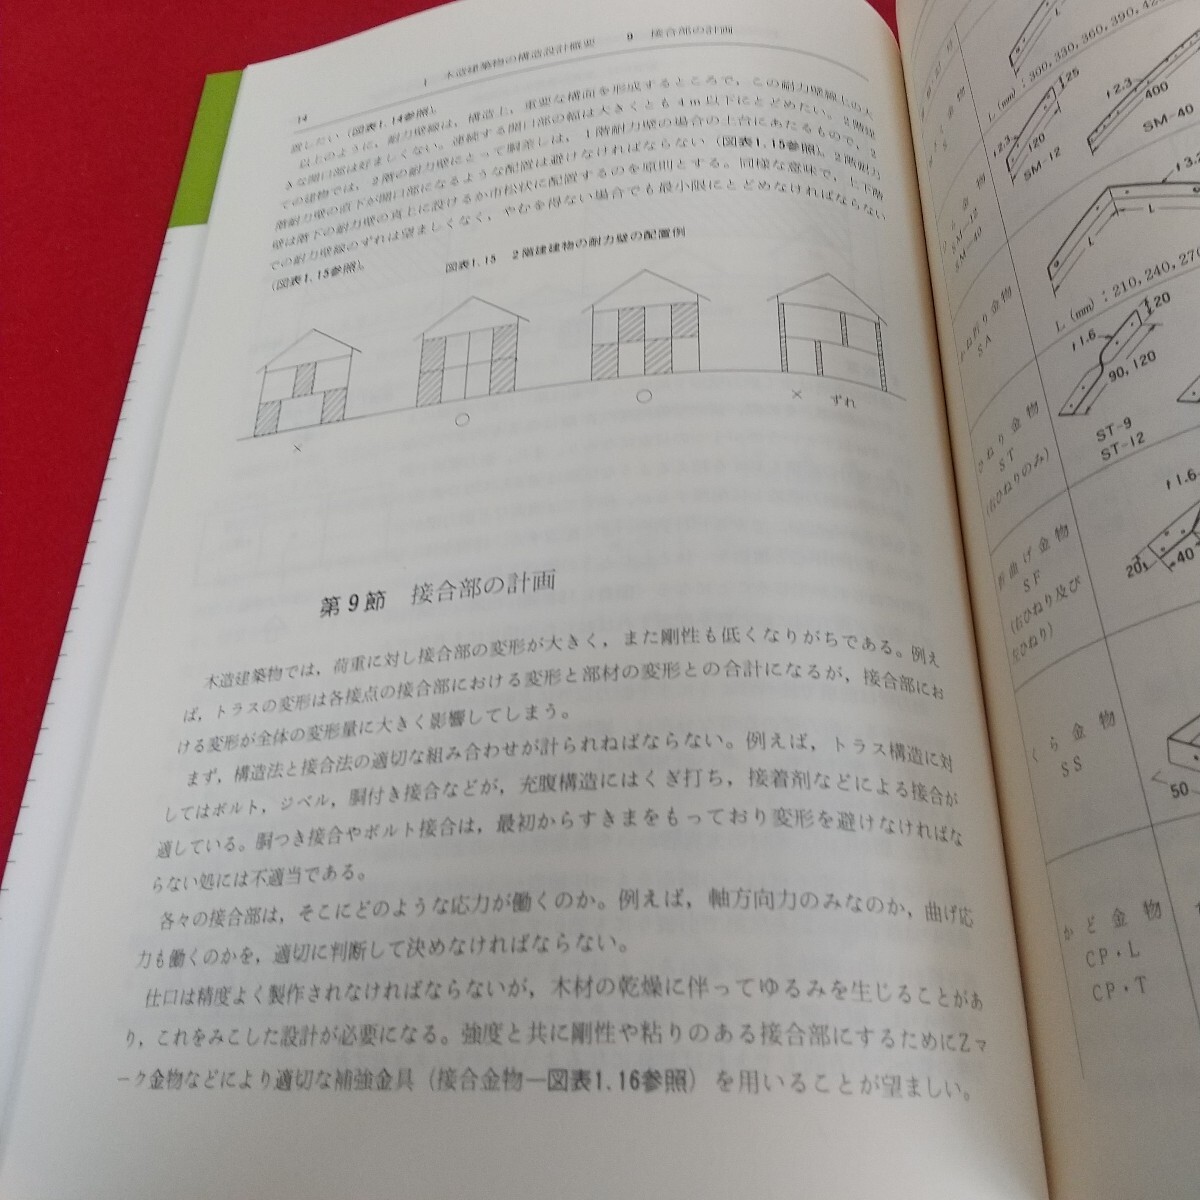 14
1 木造建築物の構造設計概要 9 接合部の計画
置したい（図表1.14参照）。
以上のように，耐力壁線は，構造上，重要な構面を形成するところで，この耐力壁線上の大
きな開口部は好ましくない。連続する開口部の幅は大きくとも4m以下にとどめたい。2階建
ての建物では，2階の耐力壁にとって胴差しは，1階耐力壁の場合の土台にあたるもので，2
階耐力壁の直下が開口部になるような配置は避けなければならない（図表1.15参照）。2階耐力
壁は階下の耐力壁の真上に設けるか市松状に配置するのを原則とする。同様な意味で，上下階
での耐力壁線のずれは望ましくなく，やむを得ない場合でも最小限にとどめなければならない
（図表1.15参照）。
図表1.15 2階建建物の耐力壁の配置例
×
○
○
× ずれ
第9節 接合部の計画
木造建築物では，荷重に対し接合部の変形が大きく，また剛性も低くなりがちである。例え
ば，トラスの変形は各接点の接合部における変形と部材の変形との合計になるが，接合部にお
ける変形が全体の変形量に大きく影響してしまう。
まず，構造法と接合法の適切な組み合わせが計られねばならない。例えば，トラス構造に対
してはボルト，ジベル，胴付き接合などが，充腹構造にはくぎ打ち，接着剤などによる接合が
適している。胴つき接合やボルト接合は，最初からすきまをもっており変形を避けなければな
らない処には不適当である。
各々の接合部は，そこにどのような応力が働くのか。例えば，軸方向力のみなのか，曲げ応
力も働くのかを，適切に判断して決めなければならない。
仕口は精度よく製作されなければならないが，木材の乾燥に伴ってゆるみを生じることがあ
り，これをみこした設計が必要になる。強度と共に剛性や粘りのある接合部にするためにZマ
ーク金物などにより適切な補強金具（接合金物―図表1.16参照）を用いることが望ましい。
L（mm）：300，330，360，390，42
t2.3
25
120
SM-12
t2.3
400
SM-40
金物
S
金物
SM-12
SM-40
t3.2
L
L
L（mm）：210，240，270
かね折り金物
SA
t1.6
20
90，120
ST-9
ST-12
ひねり金物
ST
（右ひねりのみ）
t1.6
20
40
折曲げ金物
SF
（右ひねり及び
左ひねり）
くら金物
SS
50
かど金物
CP・L
CP・T